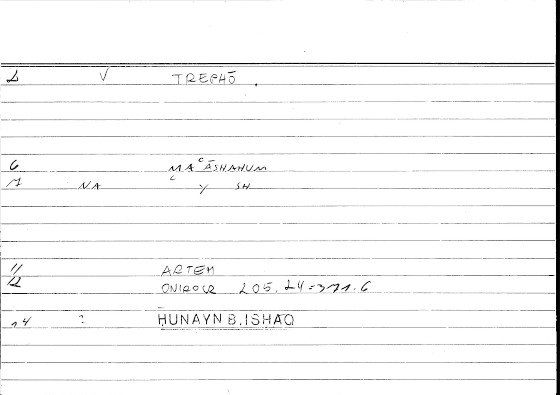 1 V TREPHŌ .
6 MAʿĀSHAHUM
7 NA ʿ Y SH
11 ARTEM
12 ONIROCR 205.24=371.6
14 : HUNAYN B. ISHAQ